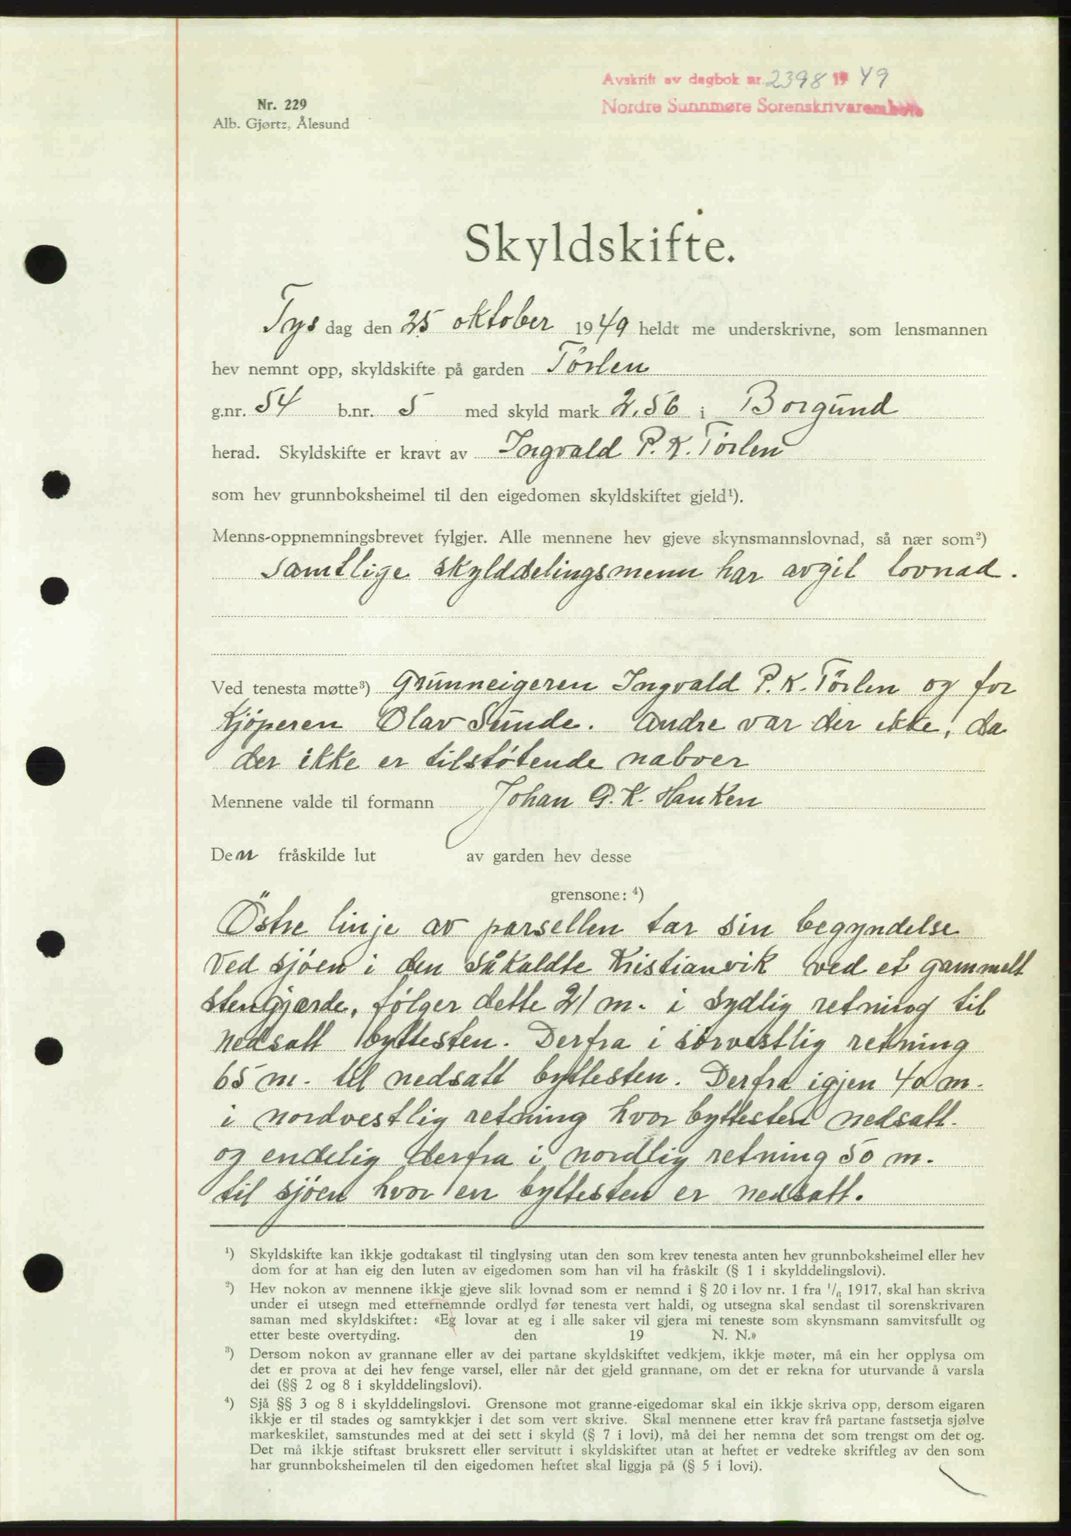 Avskrift av dagbok nr. 2398 19 49
Nordre Sunnmøre Sorenskrivarembete
Nr. 229
Alb. Gjørtz, Ålesund
Skyldskifte.
Tys dag den 25 oktober 1949 heldt me underskrivne, som lensmannen
hev nemnt opp, skyldskifte på garden Törlen
g.nr. 54 b.nr. 5 med skyld mark 2,56 i Borgund
herad. Skyldskifte er kravt av Ingvald P. K. Törlen
som hev grunnboksheimel til den eigedomen skyldskiftet gjeld¹).
Menns-oppnemningsbrevet fylgjer. Alle mennene hev gjeve skynsmannslovnad, så nær som²)
Samtlige skylddelingsmenn har avgit lovnad.
Ved tenesta møtte³) Grunneigeren Ingvald P. K. Törlen og for
kjøperen Olav Sunde. Andre var der ikke, da
der ikke er tilstøtende naboer
Mennene valde til formann Johan P. K. Hanken
Den fråskilde lut av garden hev desse
grensone: ⁴)
Östre linje av parsellen tar sin begyndelse
ved sjöen i den såkaldte Kristianvik ved et gammelt
stengjærde, følger dette 21 m. i sydlig retning til
nedsatt byttesten. Derfra i sörvestlig retning
65 m. til nedsatt byttesten. Derfra igjen 40 m.
i nordvestlig retning hvor byttesten nedsatt.
og endelig derfra i nordlig retning 50 m.
til sjöen hvor en byttesten er nedsatt.
¹) Skyldskifte kan ikkje godtakast til tinglysing utan den som krev tenesta anten hev grunnboksheimel eller hev
dom for at han eig den luten av eigedomen som han vil ha fråskilt (§ 1 i skylddelingslovi).
²) Hev nokon av mennene ikkje gjeve slik lovnad som er nemnd i § 20 i lov nr. 1 fra ¹/₆ 1917, skal han skriva
under ei utsegn med etternemnde ordlyd før tenesta vert haldi, og utsegna skal sendast til sorenskrivaren
saman med skyldskiftet: «Eg lovar at eg i alle saker vil gjera mi teneste som skynsmann samvitsfullt og
etter beste overtyding. den 19 N. N.»
³) Dersom nokon av grannane eller av dei partane skyldskiftet vedkjem, ikkje møter, må ein her opplysa om
det er prova at dei hev fenge varsel, eller når det gjeld grannane, om det er rekna for uturvande å varsla
dei (§§ 2 og 8 i skylddelingslovi).
⁴) Sjå §§ 3 og 8 i skylddelingslovi. Grensone mot granne-eigedomar skal ein ikkje skriva opp, dersom eigaren
ikkje er til stades og samtykkjer i det som vert skrive. Skal mennene etter krav frå partane fastsetja sjølve
markeskilet, samstundes med at dei sett i skyld (§ 7 i lovi), må dei her nemna det som trengst om det og.
Det må ikkje stiftast bruksrett eller servitutt i skyldskiftet utan at heftet er vedteke skriftleg av den som
har grunnboksheimelen til den eigedomen heftet skal liggja på (§ 5 i lovi).